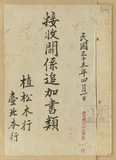 民國三十五年四月一日
接收關係追加書類
植松木行
臺北本行